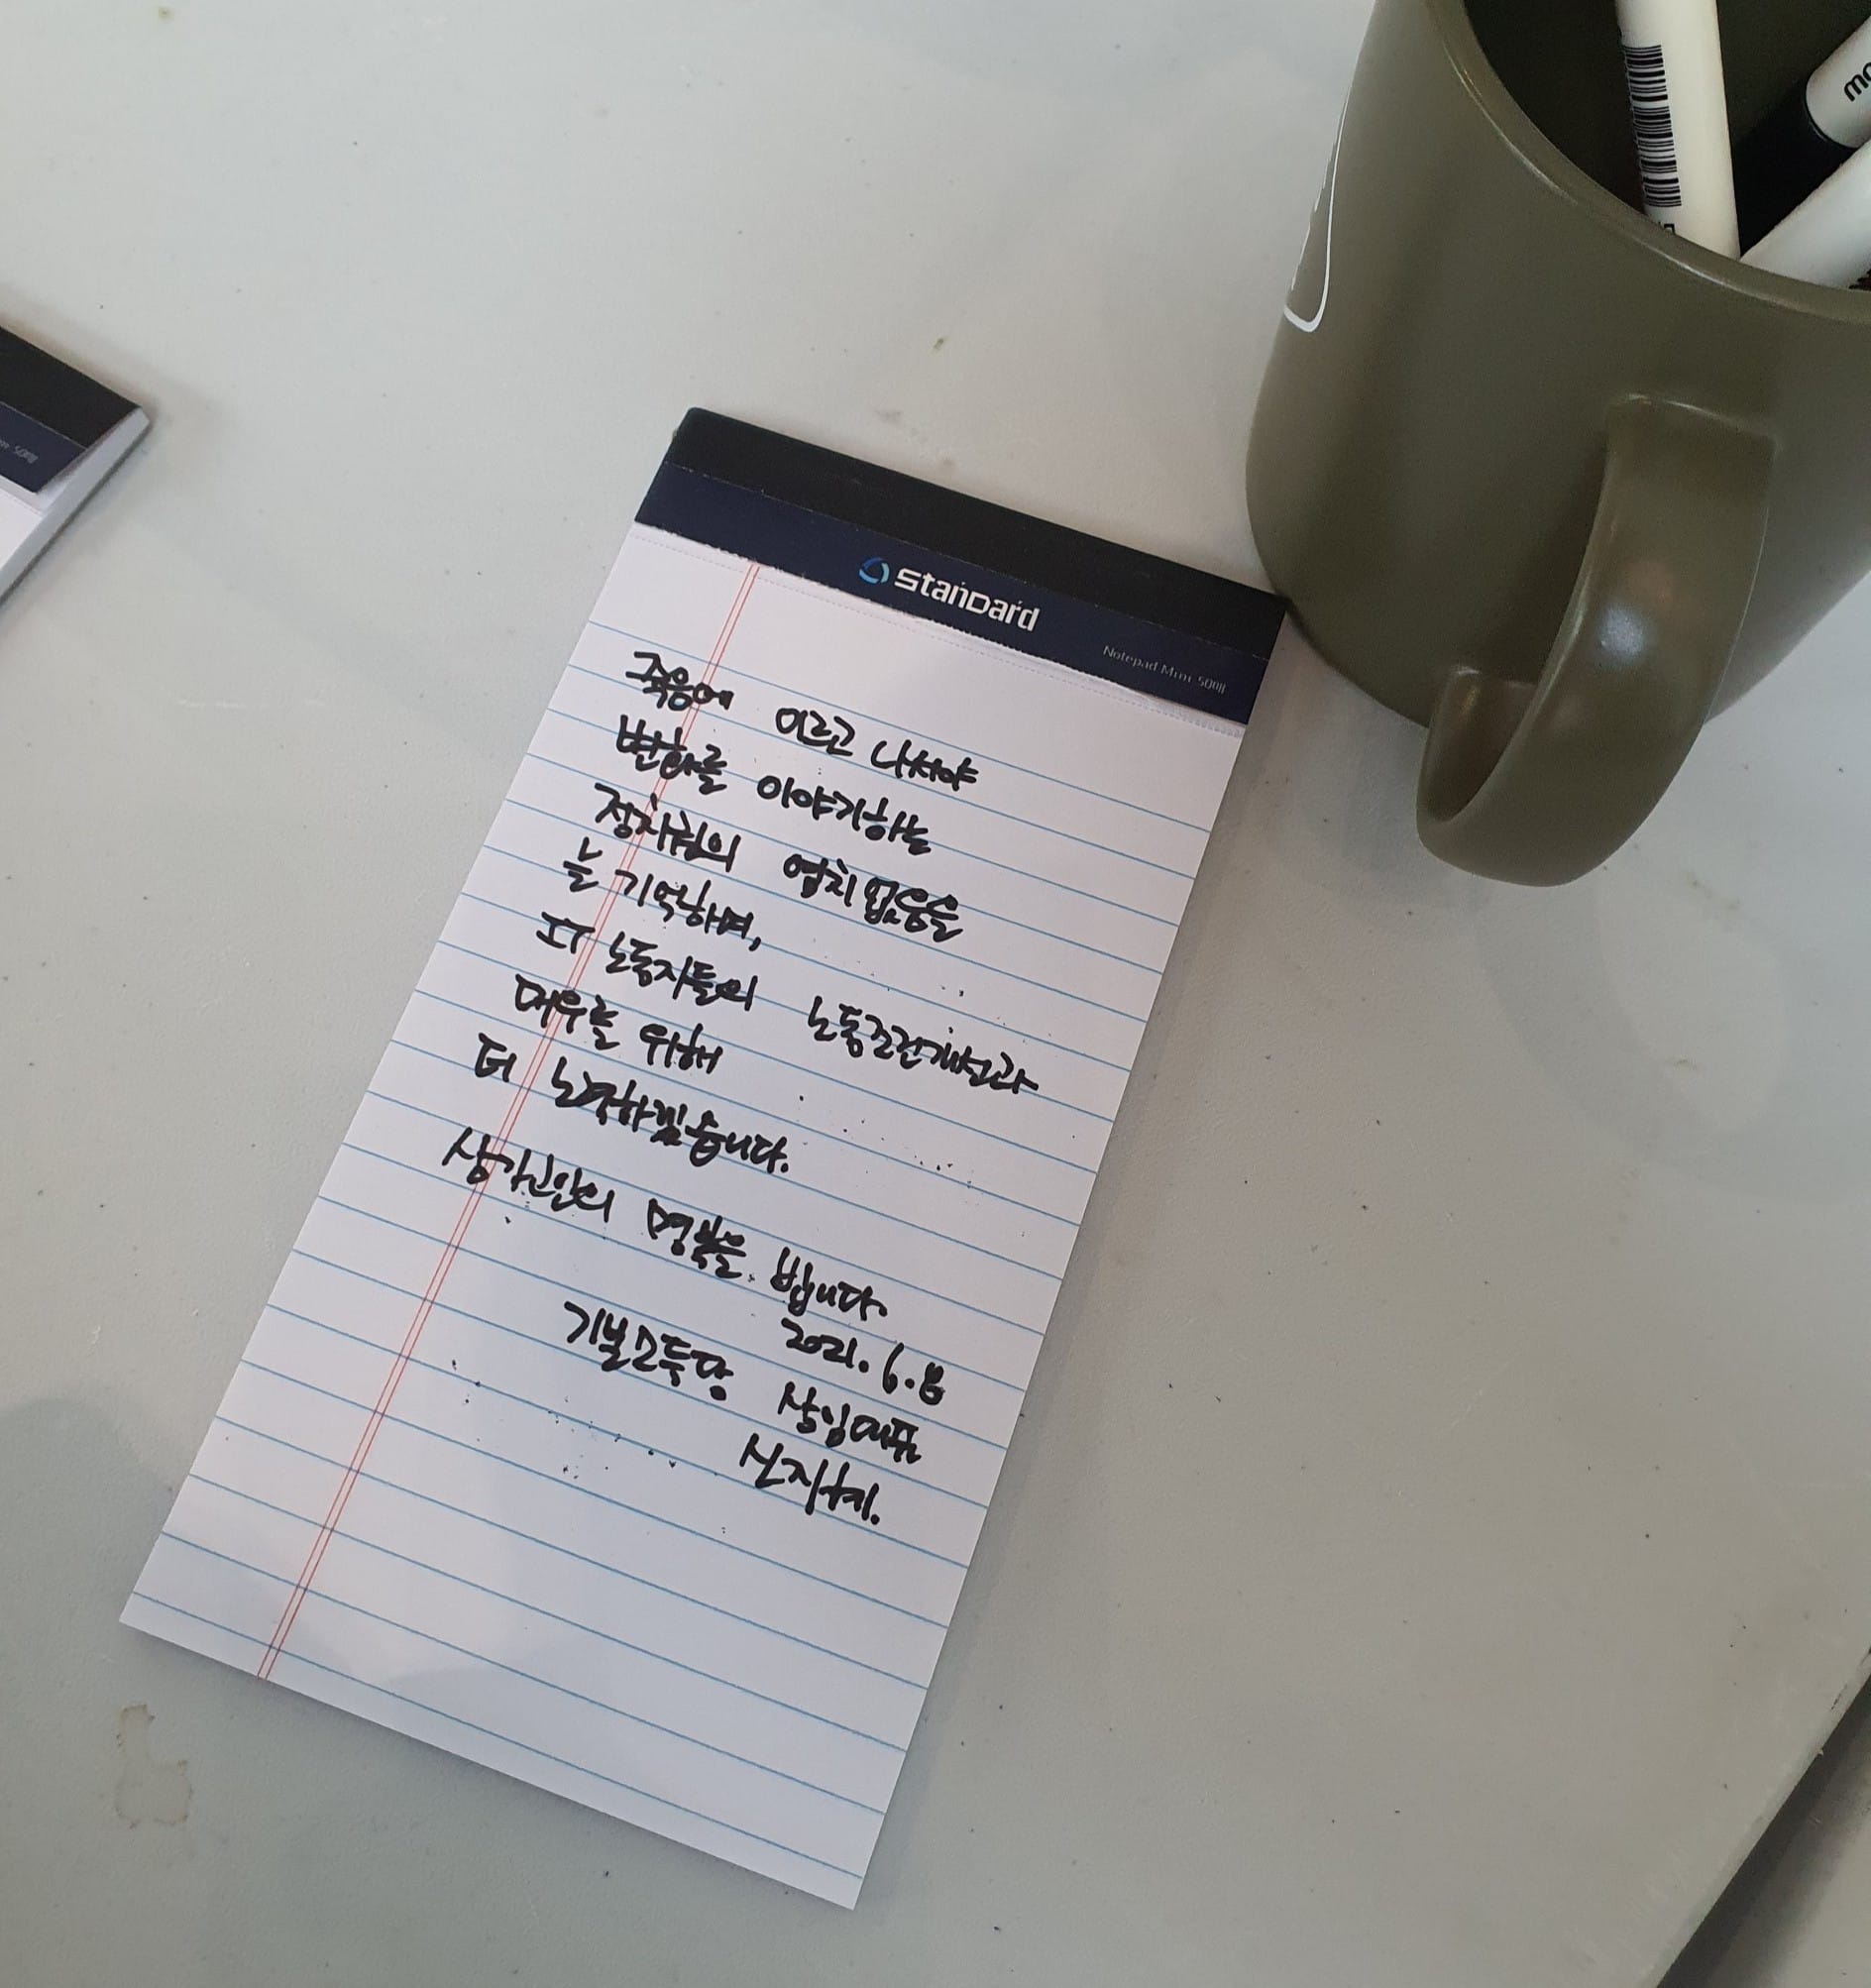 standard
Notepad Mini 50매
죽음에 이르고 나서야
변화를 이야기하는
정치권의 염치없음을
늘 기억하며,
IT 노동자들의 노동조건개선과
대우를 위해
더 노력하겠습니다.
삼가 고인의 명복을 빕니다.
2021. 6. 8
기본소득당 상임대표
신지혜.